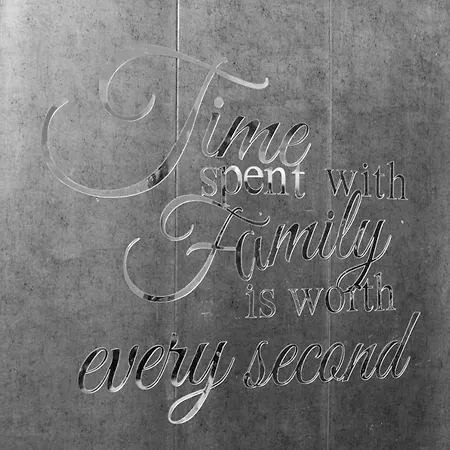 Time
spent with
Family
is worth
every second